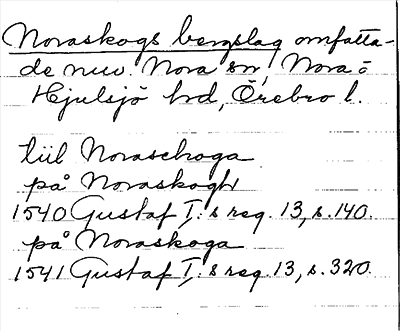 Noraskogs bergslag omfatta-
de nuv. Nora sn, Nora o
Hjulsjö hd, Örebro l.
tiil Noraschoga
på Noraskogh
1540 Gustaf I:s reg. 13, s. 140.
på Noraskoga
1541 Gustaf I:s reg. 13, s. 320.